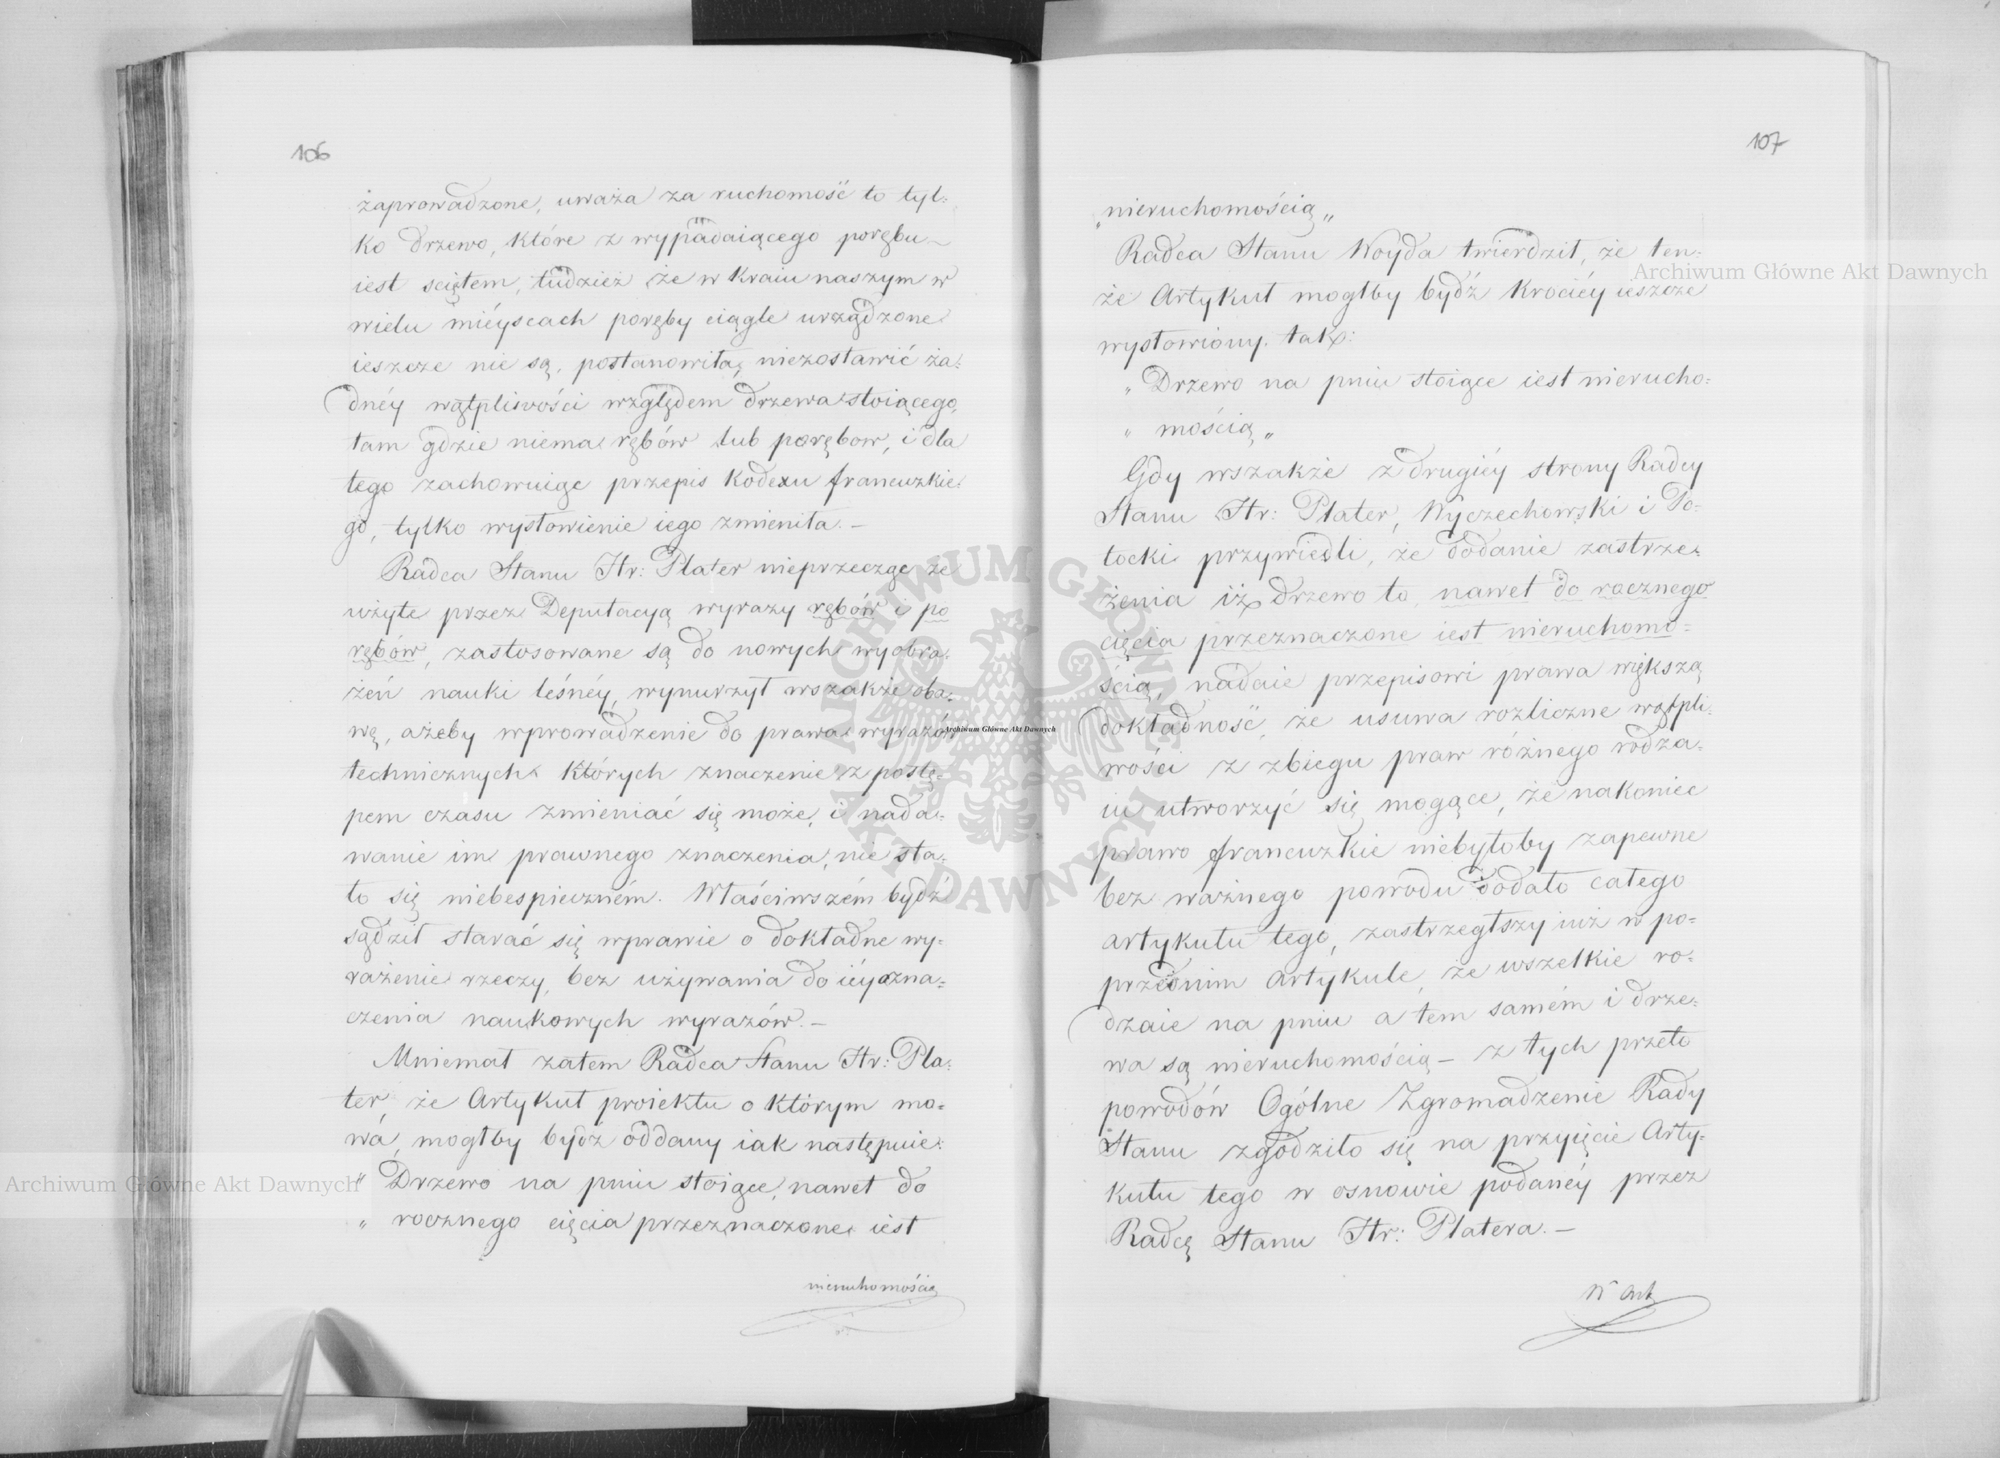 106
zaprowadzone, uważa za ruchomość to tyl-
ko drzewo, które z wypadaiącego porębu
iest sciętem, tudzież że w kraiu naszym w
wielu mieyscach poręby ciągle urządzone
ieszcze nie są, postanowiła, niezostawić ża-
dnéy wątpliwości względem drzewa stoiącego,
tam gdzie niema rębów lub porębow, i dla
tego zachowuiąc przepis Kodexu francuzkie-
go, tylko wysłowienie iego zmieniła. –
Radca Stanu Hr: Plater nieprzecząc że
użyte przez Deputacyą wyrazy rębów i po
rębów, zastosowane są do nowych wyobra-
żeń nauki leśnéy, wynurzył wszakże oba-
wę, ażeby wprowadzenie do prawa wyrazów
technicznych których znaczenie z postę-
pem czasu zmieniać się może, i nada-
wanie im prawnego znaczenia, nie sta-
ło się niebespieczném. Właściwszém bydź
sądził starać się wprawie o dokładne wy-
rażenie rzeczy, bez używania do iéy ozna-
czenia naukowych wyrazów. –
Mniemał zatem Radca Stanu Hr: Pla-
ter, że Artykuł proiektu o którym mo-
wa, mogłby bydź oddany iak następuie:
„ Drzewo na pniu stoiące, nawet do
„ rocznego cięcia przeznaczone iest
nieruchomością
107
„nieruchomością„
Radca Stanu Woyda twierdził, że ten-
że Artykuł mogłby bydź krociéy ieszcze
wysłowiony. tak:
„ Drzewo na pniu stoiące iest nierucho-
„ mością„
Gdy wszakże z drugiéy strony Radcy
Stanu Hr: Plater, Wyczechowski i Po-
tocki przywiedli, że dodanie zastrze-
żenia iż drzewo to, nawet do rocznego
cięcia przeznaczone iest nieruchomo-
ścią, nadaie przepisowi prawa większą
dokładność, że usuwa rozliczne wątpli-
wości z zbiegu praw różnego rodza-
iu utworzyć się mogące, że nakoniec
prawo francuzkie niebyłoby zapewne
bez ważnego powodu dodało całego
artykułu tego, zastrzegłszy iuż w po-
przednim artykule, że wszelkie ro-
dzaie na pniu a tem samém i drze-
wa są nieruchomością – z tych przeto
powodów Ogólne Zgromadzenie Rady
Stanu zgodziło się na przyięcie Arty-
kułu tego w osnowie podanéy przez
Radcę Stanu Hr: Platera. –
W Art
Archiwum Główne Akt Dawnych
Archiwum Główne Akt Dawnych
Archiwum Główne Akt Dawnych
ARCHIWUM GŁÓWNE
AKT DAWNYCH